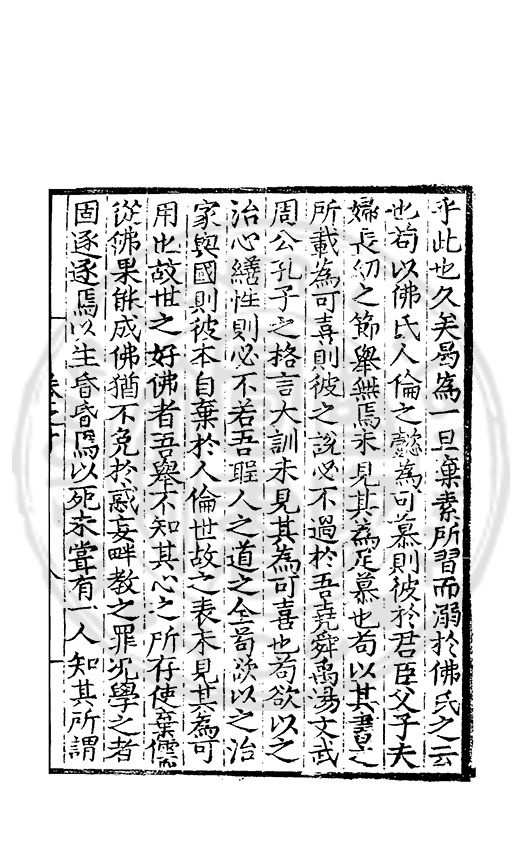 乎此也久矣曷為一旦棄素所習而溺於佛氏之云
也苟以佛氏人倫之懿為可慕則彼於君臣父子夫
婦長幼之節舉無焉未見其為足慕也苟以其書之
所載為可喜則彼之說必不過於吾堯舜禹湯文武
周公孔子之格言大訓未見其為可喜也苟欲以之
治心繕性則必不若吾聖人之道之全苟欲以之治
家與國則彼本自棄於人倫世故之表未見其為可
用也故世之好佛者吾舉不知其心之所存使棄儒
從佛果能成佛猶不免於惑妄畔教之罪況學之者
固逐逐焉以生昏昏焉以死未嘗有一人知其所謂